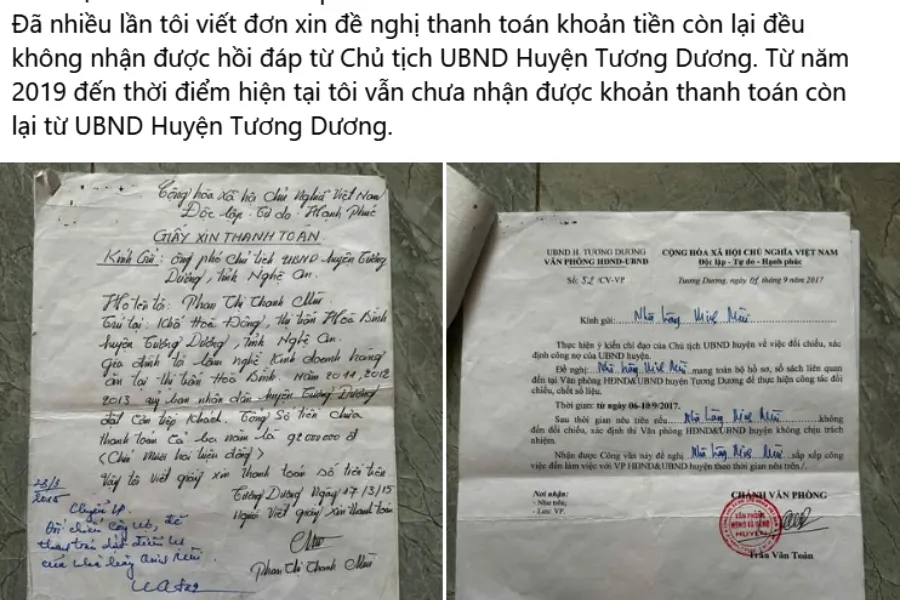 Đã nhiều lần tôi viết đơn xin đề nghị thanh toán khoản tiền còn lại đều
không nhận được hồi đáp từ Chủ tịch UBND Huyện Tương Dương. Từ năm
2019 đến thời điểm hiện tại tôi vẫn chưa nhận được khoản thanh toán còn
lại từ UBND Huyện Tương Dương.
Cộng hòa xã hội Chủ Nghĩa Việt Nam
Độc lập - Tự do - Hạnh Phúc
GIẤY XIN THANH TOÁN
Kính Gửi: ông phó chủ tịch UBND huyện Tương
Dương, tỉnh Nghệ An.
Họ tên tôi: Phan Thị Thanh Mùi
Trú tại: Khối Hoà Đông, thị trấn Hoà Bình
huyện Tương Dương, tỉnh Nghệ An.
Gia đình tôi làm nghề Kinh doanh hàng
ăn tại thị trấn Hoà Bình. Năm 2011, 2012
2013 uỷ ban nhân dân huyện Tương Dương
đặt cơm tiếp khách. Tổng Số tiền chưa
thanh toán cả ba năm là 92000000 đ
(Chín mươi hai triệu đồng)
Vậy tôi viết giấy xin thanh toán số tiền trên
Tương Dương Ngày 17/3/15
Người viết giấy xin thanh toán
Phan Thị Thanh Mùi
23/3
2015
Chuyển VP.
Đối chiếu công nợ, để
thanh toán
của nhà hàng
UBND H. TƯƠNG DƯƠNG
VĂN PHÒNG HĐND-UBND
CỘNG HÒA XÃ HỘI CHỦ NGHĨA VIỆT NAM
Độc lập - Tự do - Hạnh phúc
Số: 52/CV-VP
Tương Dương, ngày 01 tháng 9 năm 2017
Kính gửi: Nhà hàng Minh Mùi
Thực hiện ý kiến chỉ đạo của Chủ tịch UBND huyện về việc đối chiếu, xác
định công nợ của UBND huyện.
Đề nghị: Nhà hàng Minh Mùi mang toàn bộ hồ sơ, sổ sách liên quan
đến tại Văn phòng HĐND&UBND huyện Tương Dương để thực hiện công tác đối
chiếu, chốt số liệu.
Thời gian: từ ngày 06-10/9/2017.
Sau thời gian nêu trên nếu Nhà hàng Minh Mùi không
đến đối chiếu, xác định thì Văn phòng HĐND&UBND huyện không chịu trách
nhiệm.
Nhận được Công văn này đề nghị Nhà hàng Minh Mùi sắp xếp công
việc đến làm việc với VP HĐND&UBND huyện theo thời gian nêu trên/.
Nơi nhận:
- Như trên;
- Lưu: VP.
CHÁNH VĂN PHÒNG
VĂN PHÒNG
HĐND & UBND
HUYỆN
Trần Văn Toản